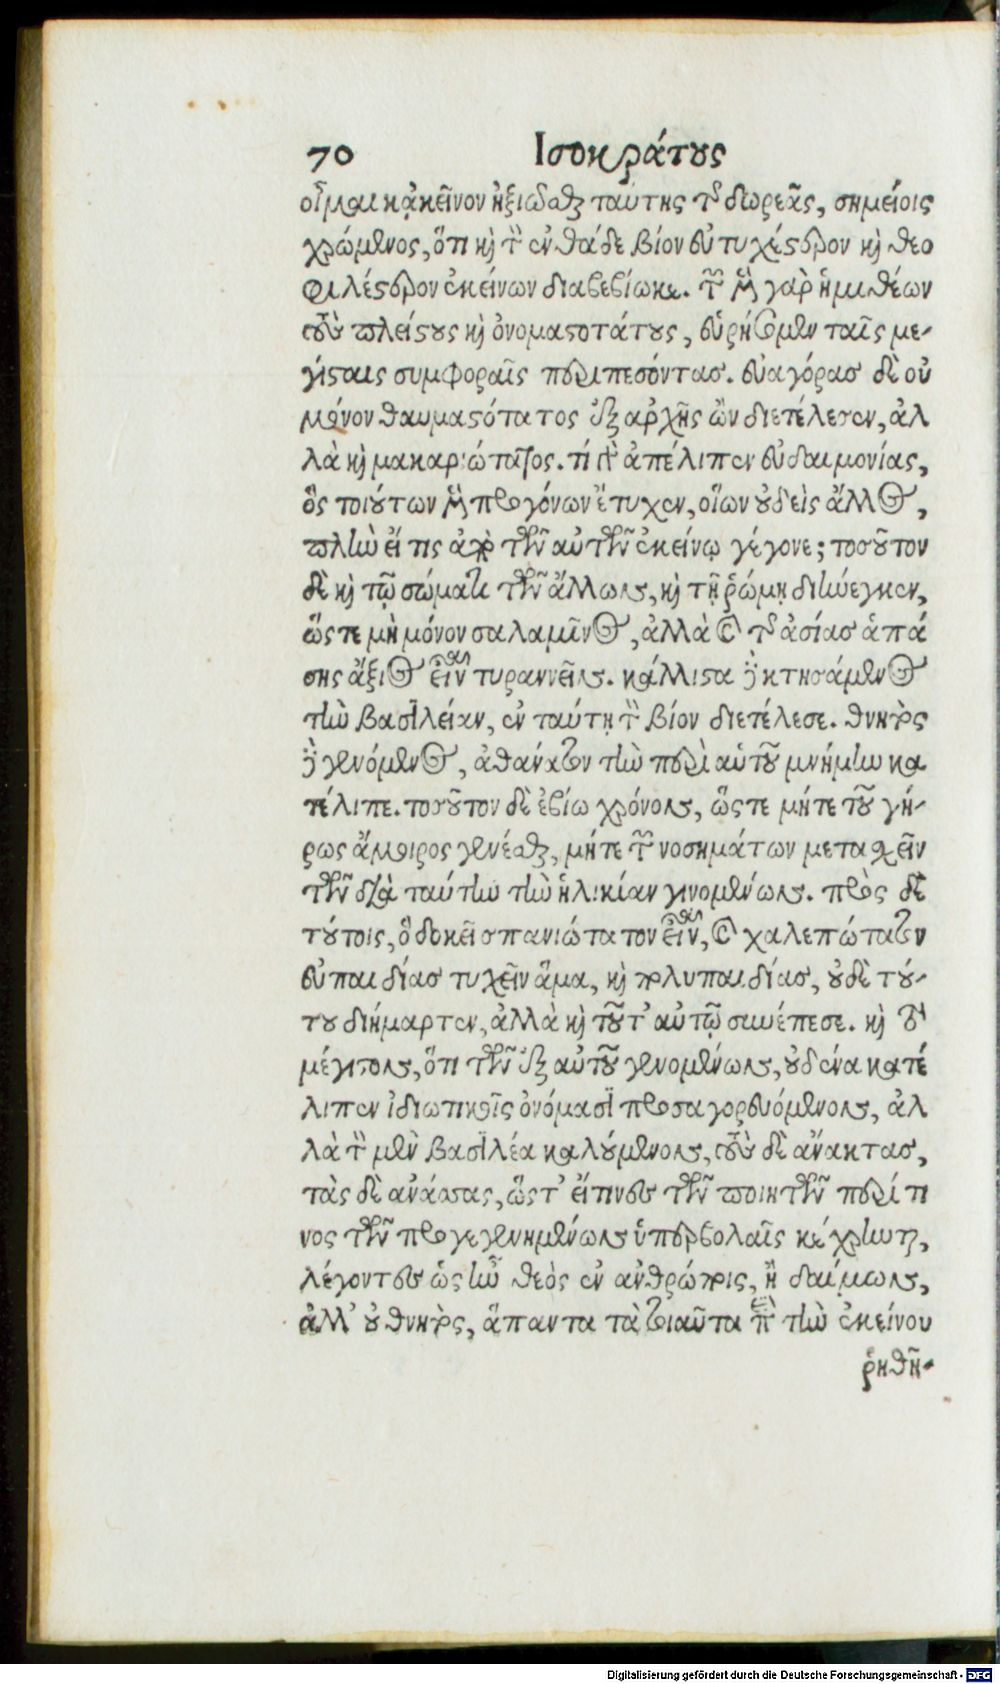 70 Ισοκράτους
οἶμαι κἀκεῖνον ἠξιῶσθαι ταύτης τῆς δωρεᾶς, σημείοις
χρώμενος, ὅτι καὶ τὸν ἐνθάδε βίον εὐτυχέστερον καὶ θεο
φιλέστερον ἐκείνων διαβεβίωκε. τῶν μὲν γὰρ ἡμιθέων
τοὺς πλείστους καὶ ὀνομαστοτάτους, εὑρήσομεν ταῖς με-
γίσταις συμφοραῖς περιπεσόντας. εὐαγόρας δὲ οὐ
μόνον θαυμαστότατος ἐξ αρχῆς ὢν διετέλεσεν, ἀλ
λὰ καὶ μακαριώτατος. τί γὰρ ἀπέλιπεν εὐδαιμονίας,
ὃς τοιούτων μὲν προγόνων ἔτυχεν, οἵων οὐδεὶς ἄλλος,
πλὴν εἴ τις ἀπὸ τῶν αὐτῶν ἐκείνῳ γέγονε; τοσοῦτον
δὲ καὶ τῷ σώματι τῶν ἄλλων, καὶ τῇ ῥώμῃ διήνεγκεν,
ὥστε μὴ μόνον σαλαμῖνος, ἀλλὰ καὶ τῆς ἀσίας ἁπά
σης ἄξιος εἶναι τυραννεῖν. κάλλιστα δὲ κτησάμενος
τὴν βασιλείαν, ἐν ταύτῃ τὸν βίον διετέλεσε. θνητὸς
δὲ γενόμενος, ἀθάνατον τὴν περὶ αὑτοῦ μνήμην κα
τέλιπε. τοσοῦτον δὲ ἐβίω χρόνον, ὥστε μήτε τοῦ γή-
ρως ἄμοιρος γενέσθαι, μήτε τῶν νοσημάτων μετασχεῖν
τῶν διὰ ταύτην τὴν ἡλικίαν γινομένων. πρὸς δὲ
τούτοις, ὃ δοκεῖ σπανιώτατον εἶναι, καὶ χαλεπώτατον
εὐπαιδίας τυχεῖν ἅμα, καὶ πολυπαιδίας, οὐδὲ τού-
του διήμαρτεν, ἀλλὰ καὶ τοῦτ' αὐτῷ συνέπεσε. καὶ τὸ
μέγιστον, ὅτι τῶν ἐξ αὐτοῦ γενομένων, οὐδένα κατέ
λιπεν ἰδιωτικοῖς ὀνόμασι προσαγορευόμενον, ἀλ
λὰ τὸν μὲν βασιλέα καλούμενον, τοὺς δὲ ἄνακτας,
τὰς δὲ ανάσσας, ὥστ' εἴ τινες τῶν ποιητῶν περί τι
νος τῶν προγεγενημένων ὑπερβολαῖς κέχρηνται,
λέγοντες ὡς ἦν θεὸς ἐν ανθρώποις, ἢ δαίμων,
ἀλλ' οὐ θνητὸς, ἅπαντα τὰ τοιαῦτα περὶ τὴν ἐκείνου
ῥηθῆ-
Digitalisierung gefördert durch die Deutsche Forschungsgemeinschaft - DFG